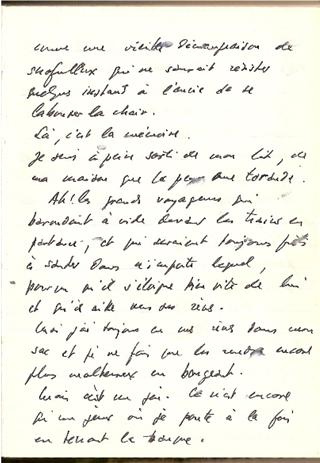 comme une vieille démangeaison de
scrofuleux qui ne saurait résister
quelques instants à l'envie de se
labourer la chair.
Là, c'est la mémoire.
Je suis à peine sorti de mon lit, de
ma maison que la peur me
Ah! les grands voyageurs qui
à vide devant les trains en
partance, et qui seraient toujours prêts
à sauter dans n'importe lequel,
pourvu qu'il s'éloigne bien vite de lui
et qu'il aille vers des rêves.
Moi j'ai toujours eu mes rêves dans mon
sac et je ne fais que les rendre encore
plus malheureux en bougeant.
Mais c'est un jeu. Ce n'est encore
qu'un jeu où je parle à la fois
en tenant la banque.